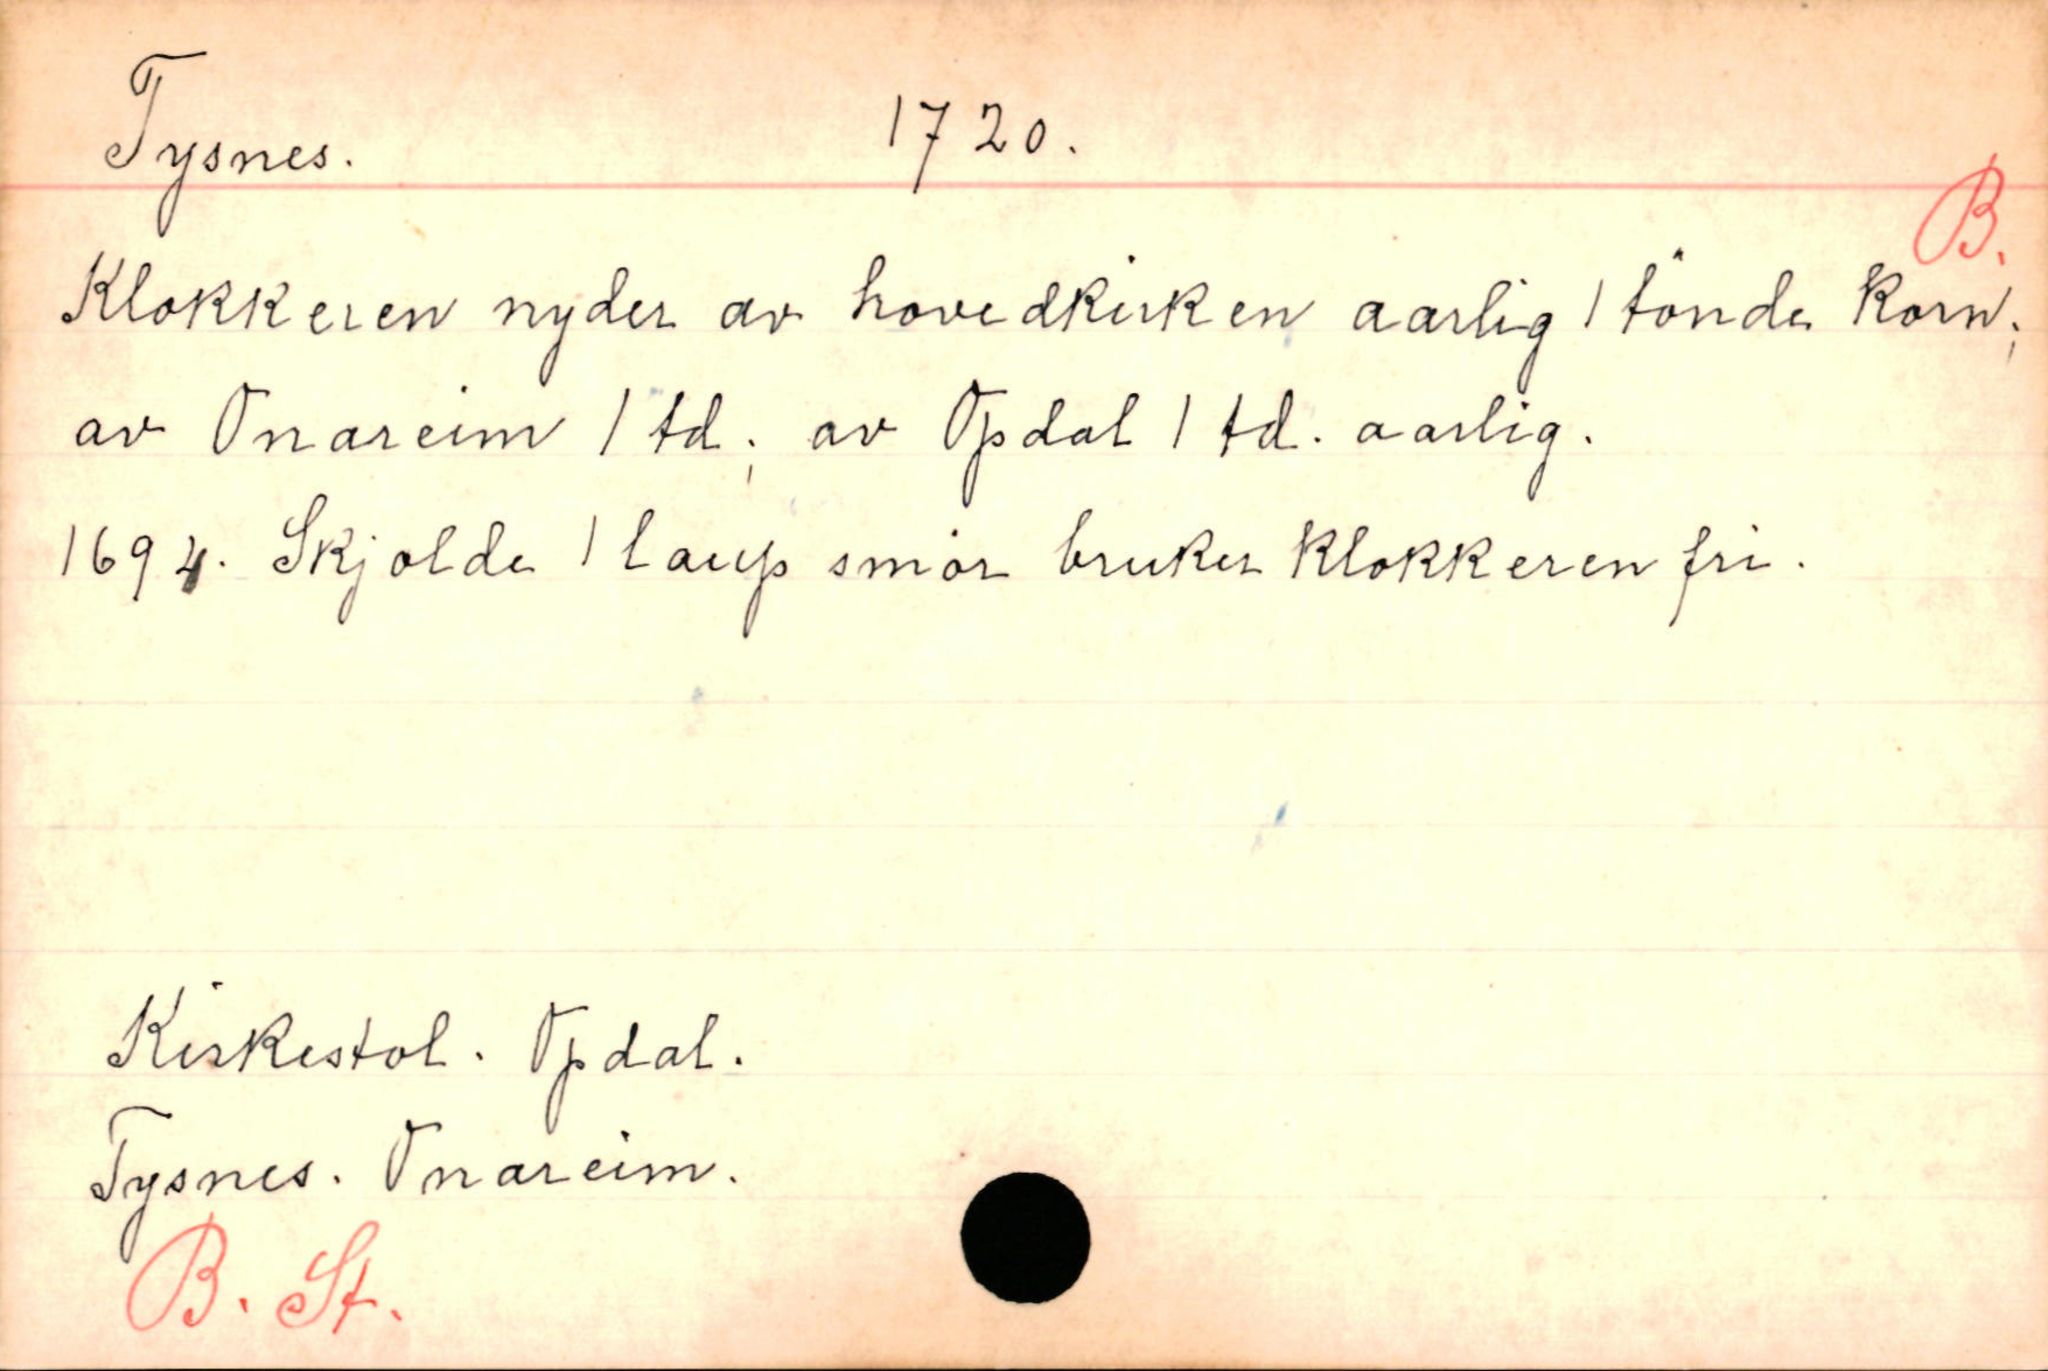 Tysnes. 1720.
B.
Klokkeren nyder av hovedkirken aarlig 1 tönde korn;
av Onareim 1 td; av Opdal 1 td. aarlig.
1694. Skjolde 1 laup smör bruker klokkeren fri.
Kirkestol. Opdal.
Tysnes. Onareim.
B. St.